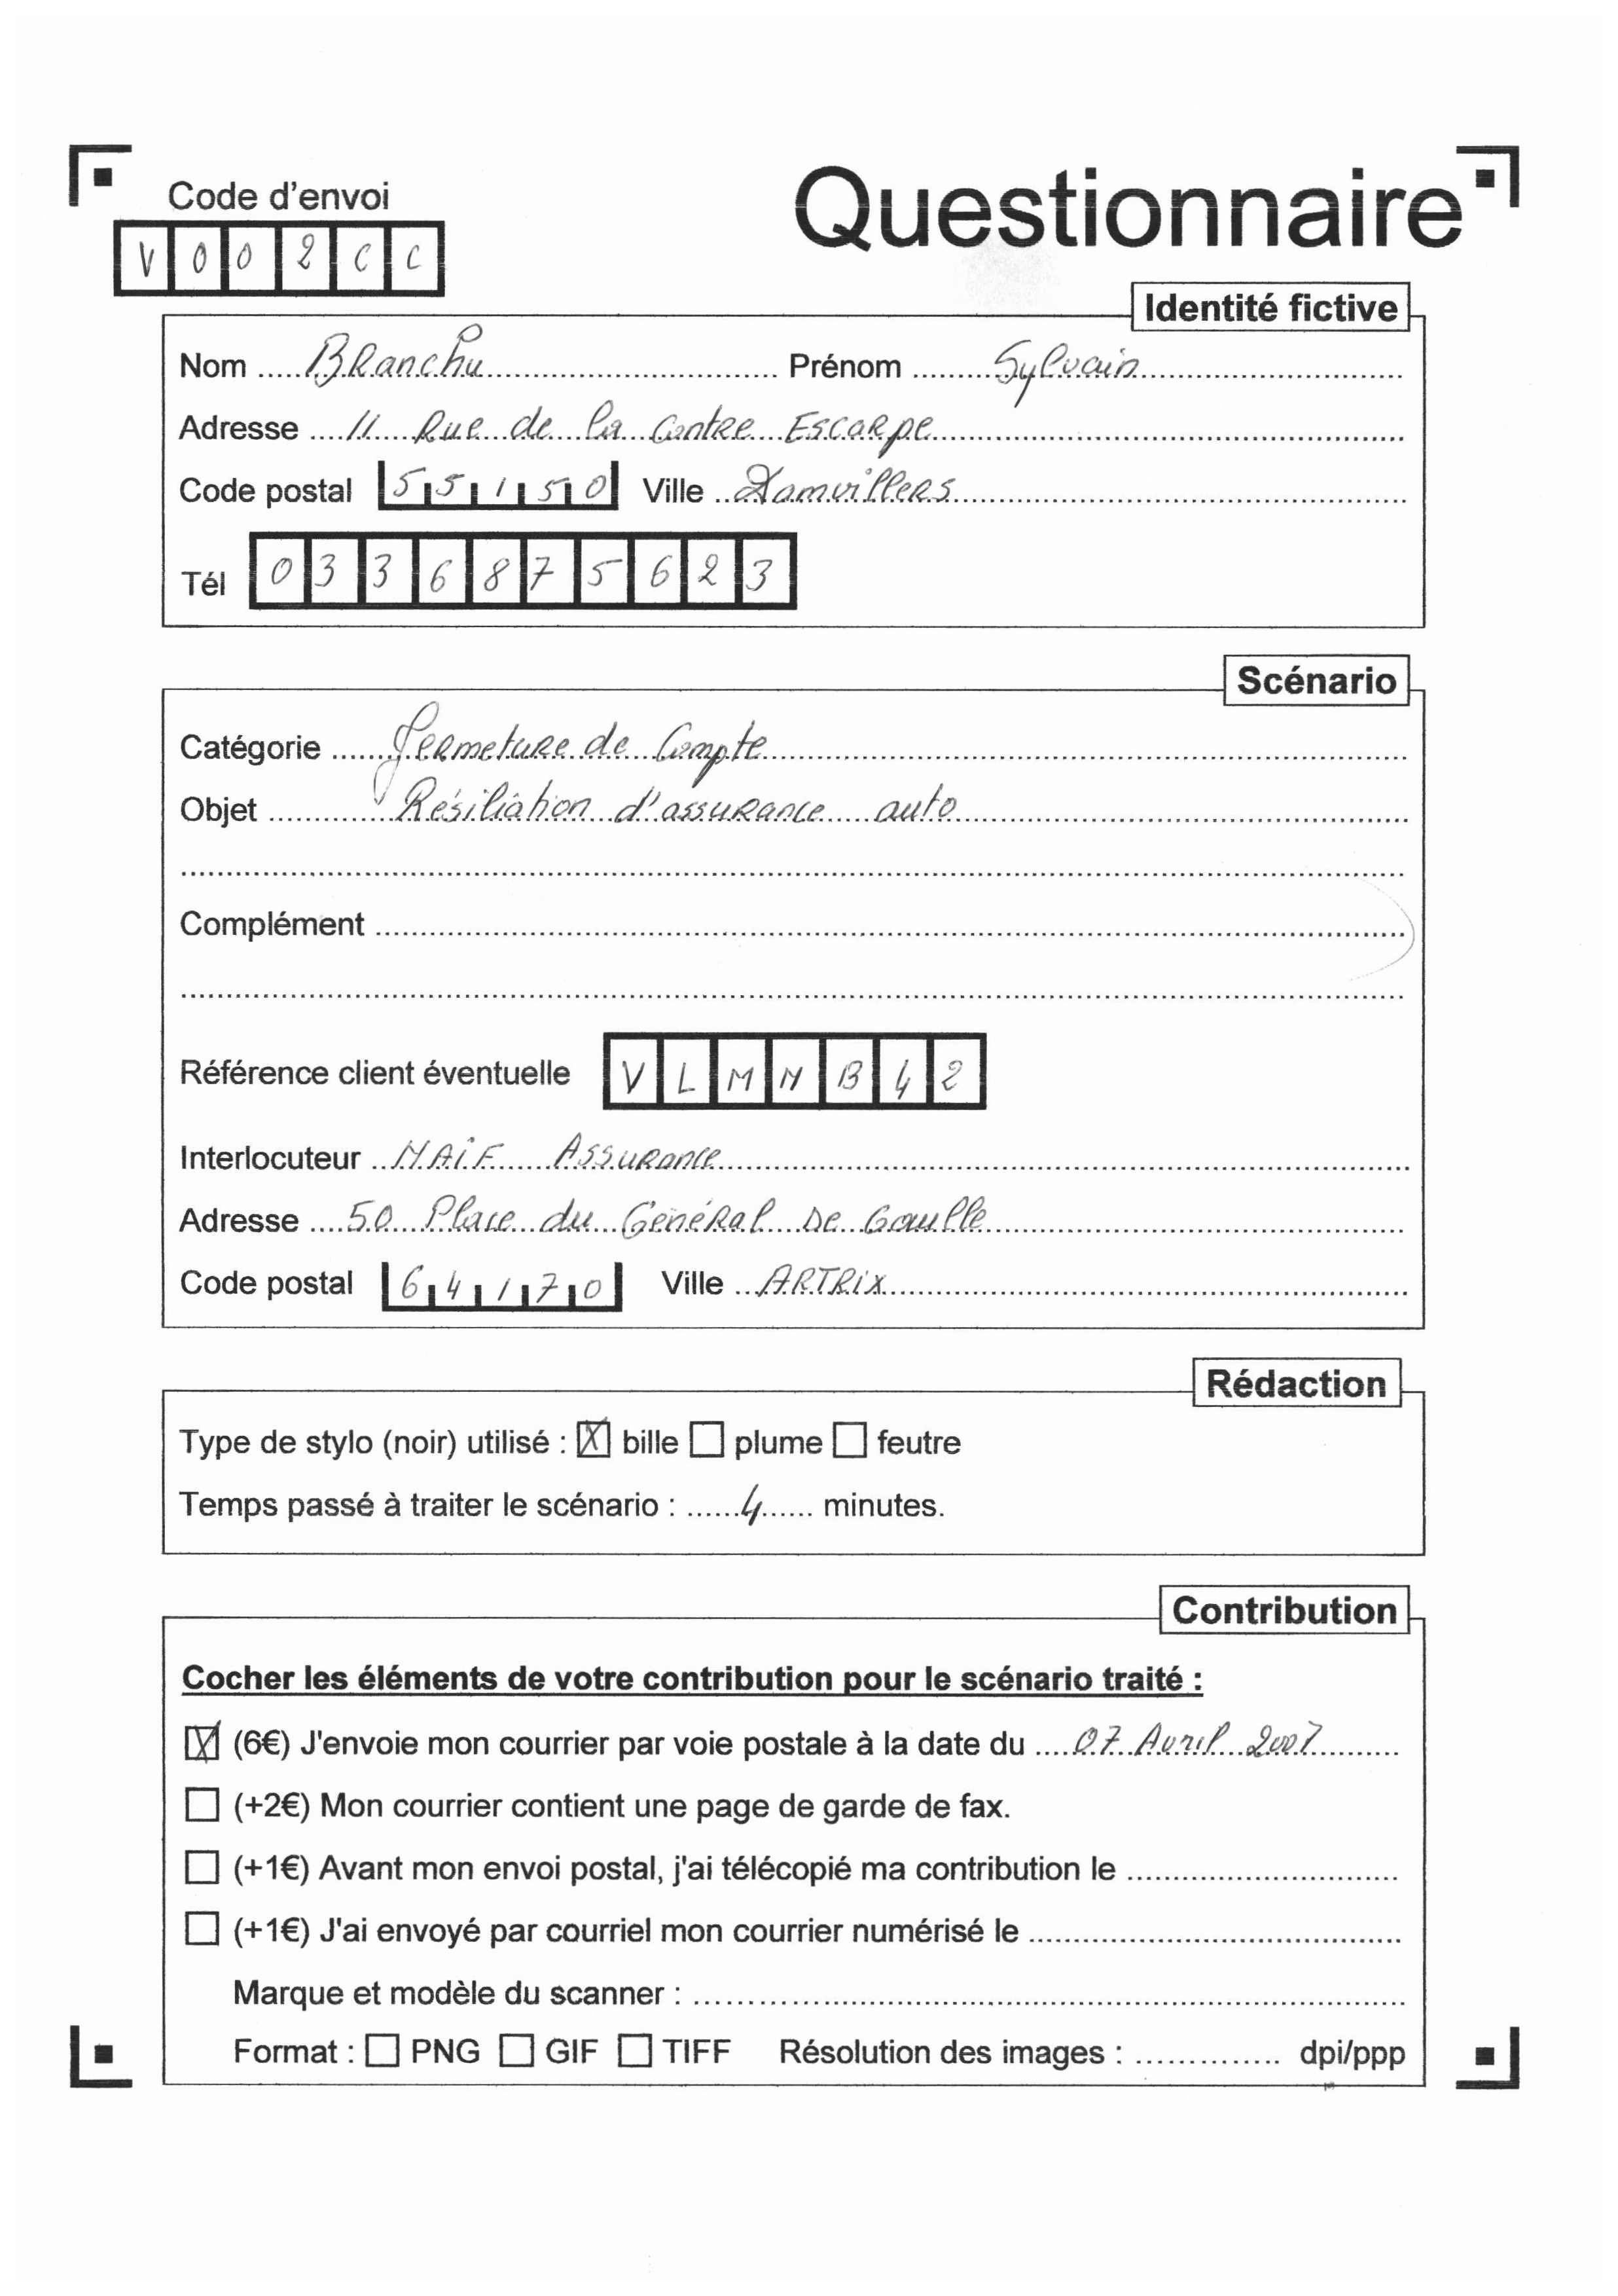 Questionnaire
Code d'envoi
V002CC
Identité fictive
Nom Blanchu Prénom Sylvain
Adresse 11 Rue de la Contre Escarpe
Code postal 55150 Ville Damvillers
Tél 0336875623
Scénario
Catégorie Fermeture de Compte
Objet Résiliation d'assurance auto
Complément
Référence client éventuelle VLMNB42
Interlocuteur MAiF Assurance
Adresse 50 Place du Général De Gaulle
Code postal 64170 Ville ARTRiX
Rédaction
Type de stylo (noir) utilisé : bille plume feutre
Temps passé à traiter le scénario : 4 minutes.
Contribution
Cocher les éléments de votre contribution pour le scénario traité :
(6€) J'envoie mon courrier par voie postale à la date du 07 Avril 2007
(+2€) Mon courrier contient une page de garde de fax.
(+1€) Avant mon envoi postal, j'ai télécopié ma contribution le
(+1€) J'ai envoyé par courriel mon courrier numérisé le
Marque et modèle du scanner :
Format : PNG GIF TIFF Résolution des images : dpi/ppp